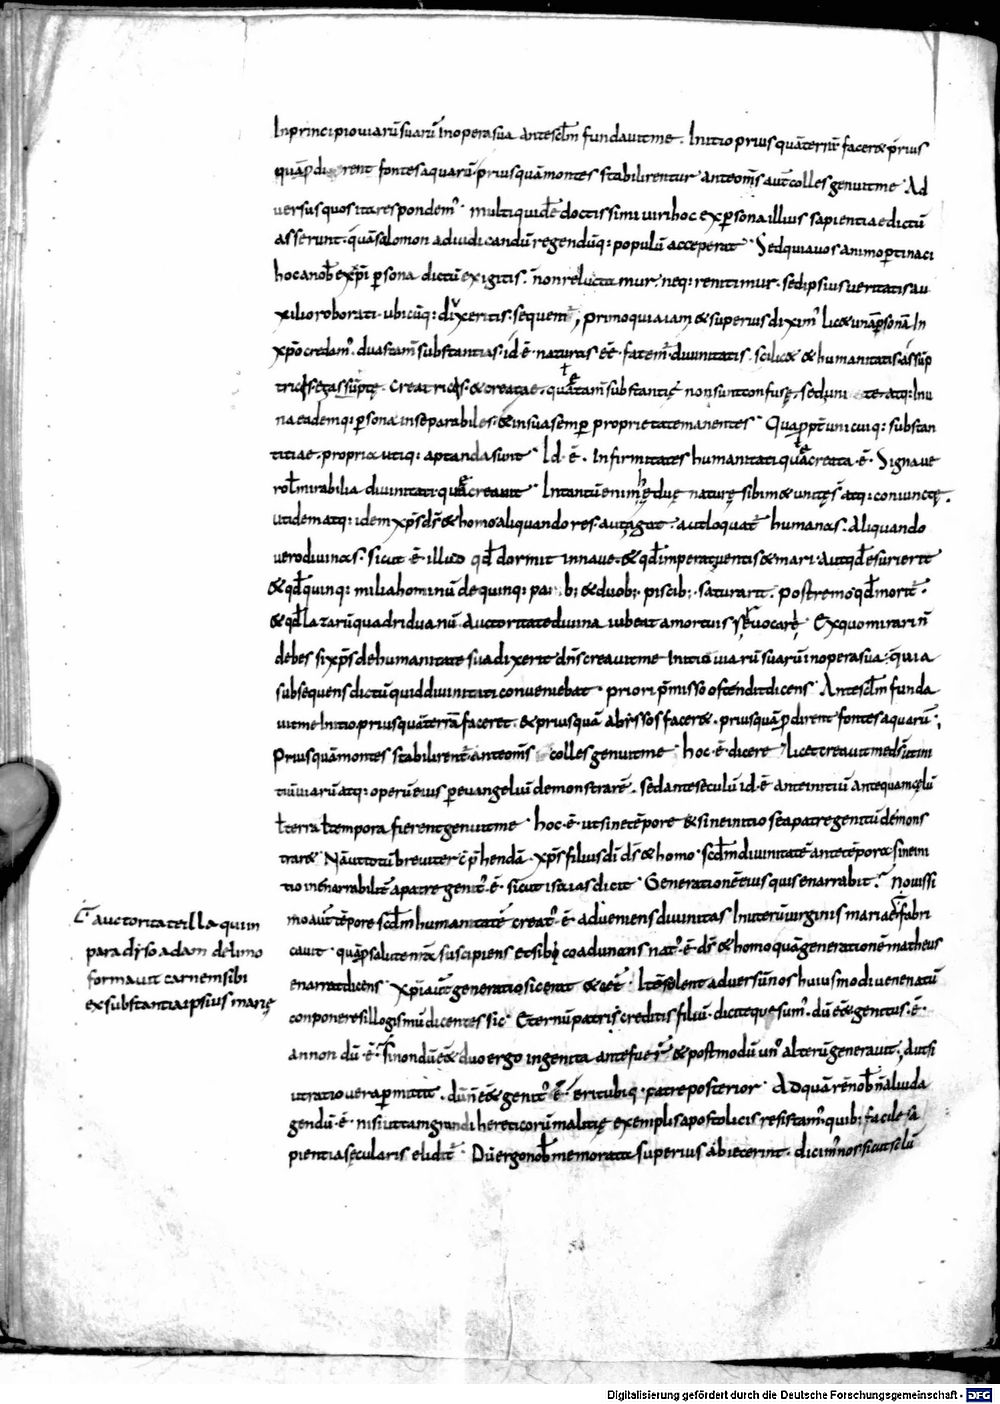 In principio viarū suarū in opera sua ante sclm̄ fundavit me. Initio prius quā terrā faceret & prius
quāp dirent fontes aquarū prius quā montes stabilirentur ante om̄s aut̄ colles genuit me Ad
versus quos ita respondem' multi quidē doctissimi viri hoc ex psona illius sapientiae dictū
asserunt quā salomon ad iudicandū regendūq: populū acceperat Sed quia vos animo ptinaci
hoc a nob̄ ex xp̄i psona dictū exigitis. non reluctamur. neq: renitimur. sed ipsius veritatis au
xilio roborati ubicūq: dixeritis sequem̄; Primo quia iam & superius dixim' licet unā psonā In
xp̄o credam'. duas tam̄ substantias. id ē naturas eē fatem̄ divinitatis. scilic& & humanitatis assūp
tricis et assūptę. creatricis & creatae. quae tam̄ substantię non sunt confusę. sed uni te atq: In u
na eademq: psona inseparabiles & in sua semp proprietate manentes Quappt̄ unicuiq: substan
titiae propria utiq: aptanda sunt Id ē. Infirmitates humanitati quae creata ē. Signa ve
rol mirabilia divinitati quae creavit In tantū enim hę duę naturę sibim& unitę s̄ atq: coniunctę.
ut idem atq: idem xp̄s ds̄ & homo aliquando res aut agat. aut loquat̄ humanas. Aliquando
vero divinas. sicut ē illud qd̄ dormit in nave. & qd̄ imperat ventis & mari Aut qd̄ esurierit
& qd̄ quinq: milia hominū de quinq: panib; & duob; piscib; saturarit. postremo qd̄ morit̄.
& qd̄ lazarū quadriduanū. Auctoritate divina iubeat a mortuis revocare Ex quo mirari n̄
debes si xp̄s de humanitate sua dixerit dn̄s creavit me Initio viarū suarū in opera sua. quia
subsequens dictū quid divinitati conveniebat. priori pmisso ostendit dicens Ante sclm̄ funda
vit me Initio prius quā terrā faceret. & prius quā abyssos facer&. prius quāp dirent fontes aquarū;
Prius quā montes stabilirent̄ ante om̄s colles genuit me hoc ē dicere licet creavit me ds̄ initi
tiū viarū atq: operū eius p evangeliū demonstrare. sed ante seculū id ē ante initiū antequam cęlū
l terra l tempora fierent genuit me hoc ē ut sine tēpore & sine initio se a patre genitū demons
trar& Nā ut totū breviter cp̄hendā xp̄s filius dī ds̄ & homo. scdm̄ divinitatē ante tēpora sine ini
tio inenarrabilit̄ a patre genit' ē. sicut isaias dicit Generationē eius quis enarrabit? Novissi
mo aut̄ tēpore scdm̄ humanitatē creat' ē. adveniens divinitas In uterū virginis mariae fabri
cavit quāp salute nr̄a suscipiens et sibi coadunans nat' ē ds̄ & homo quā generationē matheus
enarrat dicens xp̄i aut̄ generatio sic erat & cet̄ Itē solent adversū nos huiusmodi venenatū
conponere sillogismū dicentes sic Eternū patris creditis filiū. dicite quesum'. dū ēēt genitus ē
an non dū ē. Si nondū ēēt duo ergo ingenita ante fuer̄ & postmodū un' alterū generavit; Aut si
ut ratio vera pmittit. dū n̄ ēēt genit' ē eritubiq: patre posterior Ad quā rē nob̄ n̄ aliud a
gendū ē. nisi ut tam grandi hereticorū malitię exemplis apostolicis resistam'. quib; facile sa
pientia secularis elidit̄ Dū ergo nob̄ memorata superius abiecerint. dicim' nos sicut selū
auctoritate illa qui in
paradyso adam de limo
formavit carnem sibi
ex substantia ipsius marię
Digitalisierung gefördert durch die Deutsche Forschungsgemeinschaft - DFG